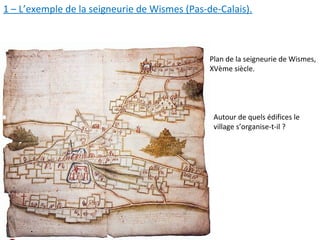 1 – L’exemple de la seigneurie de Wismes (Pas-de-Calais).
Plan de la seigneurie de Wismes,
XVème siècle.
Autour de quels édifices le
village s’organise-t-il ?